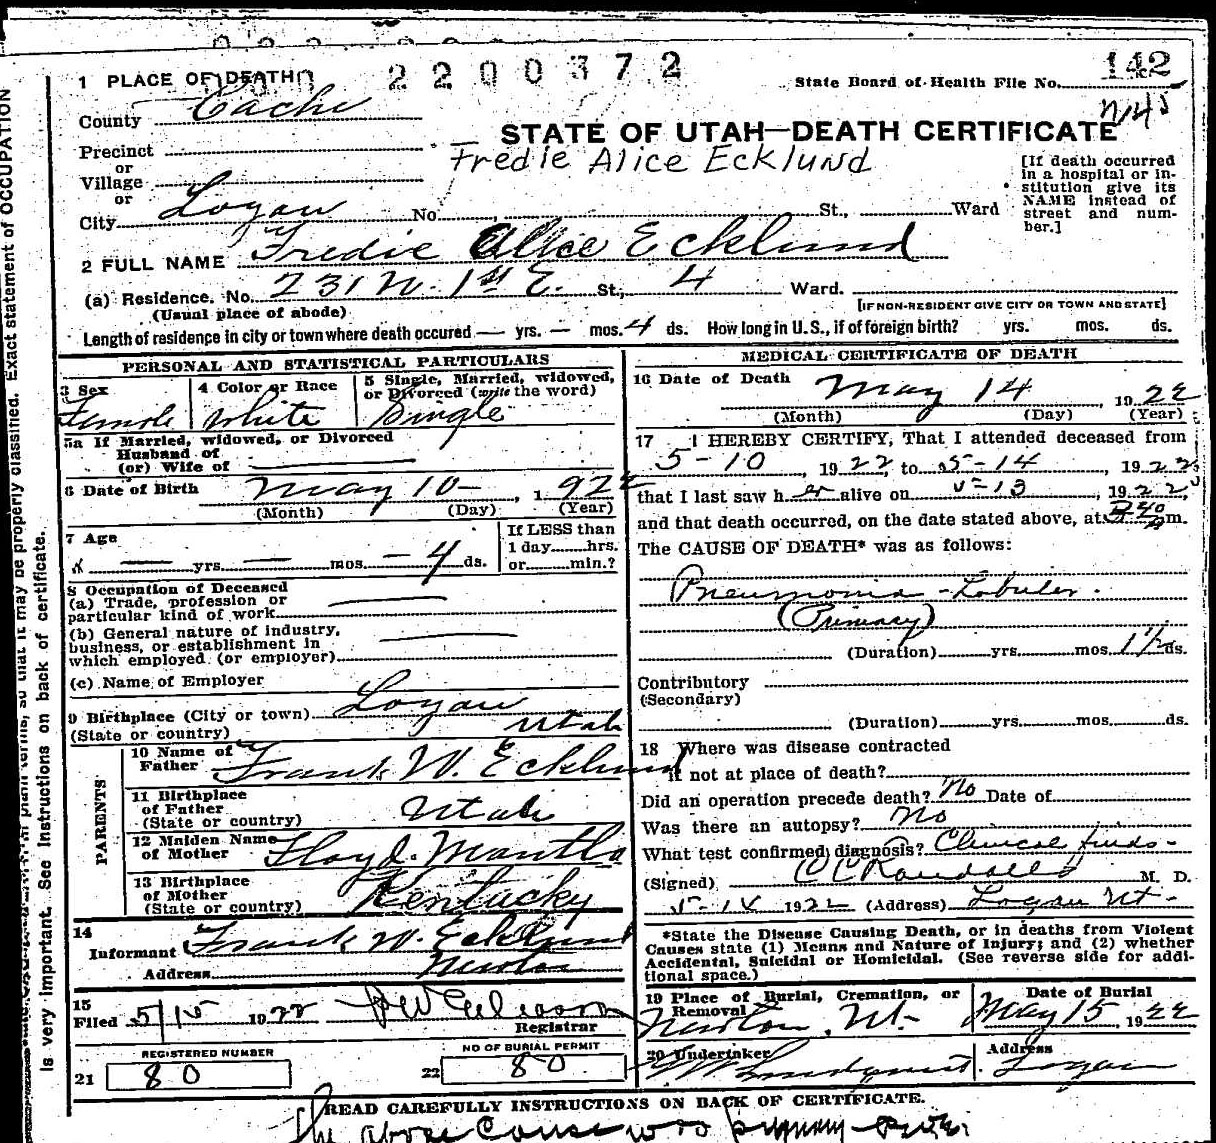 2200372
142
1 PLACE OF DEATH
State Board of Health File No.
County Cache
STATE OF UTAH—DEATH CERTIFICATE
Precinct
Fredie Alice Ecklund
or
Village
or
City Logan No. St., Ward
[If death occurred in a hospital or institution give its NAME instead of street and number.]
2 FULL NAME Fredie Alice Ecklund
(a) Residence. No. 231 N. 1st E. St., 4 Ward.
(Usual place of abode)
[IF NON-RESIDENT GIVE CITY OR TOWN AND STATE]
Length of residence in city or town where death occured — yrs. — mos. 4 ds. How long in U.S., if of foreign birth? yrs. mos. ds.
PERSONAL AND STATISTICAL PARTICULARS
3 Sex
Female
4 Color or Race
White
5 Single, Married, widowed,
or Divorced (write the word)
Single
5a If Married, widowed, or Divorced
Husband of
(or) Wife of
6 Date of Birth May 10 - , 1922
(Month) (Day) (Year)
7 Age
— yrs. — mos. — 4 ds.
If LESS than
1 day......hrs.
or......min.?
8 Occupation of Deceased
(a) Trade, profession or
particular kind of work
(b) General nature of industry,
business, or establishment in
which employed (or employer)
(c) Name of Employer
9 Birthplace (City or town) Logan
(State or country) Utah
PARENTS
10 Name of
Father Frank W. Ecklund
11 Birthplace
of Father
(State or country) Utah
12 Maiden Name
of Mother Floyd Mantlo
13 Birthplace
of Mother
(State or country) Kentucky
14
Informant Frank W. Ecklund
Address Newton
15
Filed 5/15 1922
Registrar
REGISTERED NUMBER
21 80
NO OF BURIAL PERMIT
22 80
MEDICAL CERTIFICATE OF DEATH
16 Date of Death May 14 1922
(Month) (Day) (Year)
17 I HEREBY CERTIFY, That I attended deceased from
5-10, 1922 to 5-14, 1922
that I last saw her alive on 5-13, 1922,
and that death occurred, on the date stated above, at m.
The CAUSE OF DEATH* was as follows:
Pneumonia - Lobular.
(Primary)
(Duration) yrs. mos. 1½ ds.
Contributory
(Secondary)
(Duration) yrs. mos. ds.
18 Where was disease contracted
if not at place of death?
Did an operation precede death? No Date of
Was there an autopsy? No
What test confirmed diagnosis? Clinical finds -
(Signed) M. D.
5-14 1922 (Address) Logan Ut -
*State the Disease Causing Death, or in deaths from Violent
Causes state (1) Means and Nature of Injury; and (2) whether
Accidental, Suicidal or Homicidal. (See reverse side for addi-
tional space.)
19 Place of Burial, Cremation, or
Removal
Newton, Ut-
Date of Burial
May 15 1922
20 Undertaker
Address
Logan
READ CAREFULLY INSTRUCTIONS ON BACK OF CERTIFICATE.
The above cause was primary
Exact statement of OCCUPATION
so that it may be properly classified.
is very important. See Instructions on back of certificate.